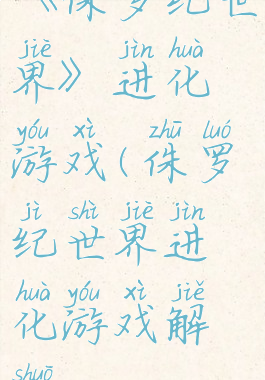 《侏罗纪世
jiè jìn huà
界》 进化
yóu xì zhū luó
游戏(侏罗
jì shì jiè jìn
纪世界进
huà yóu xì jiě
化游戏解
shuō